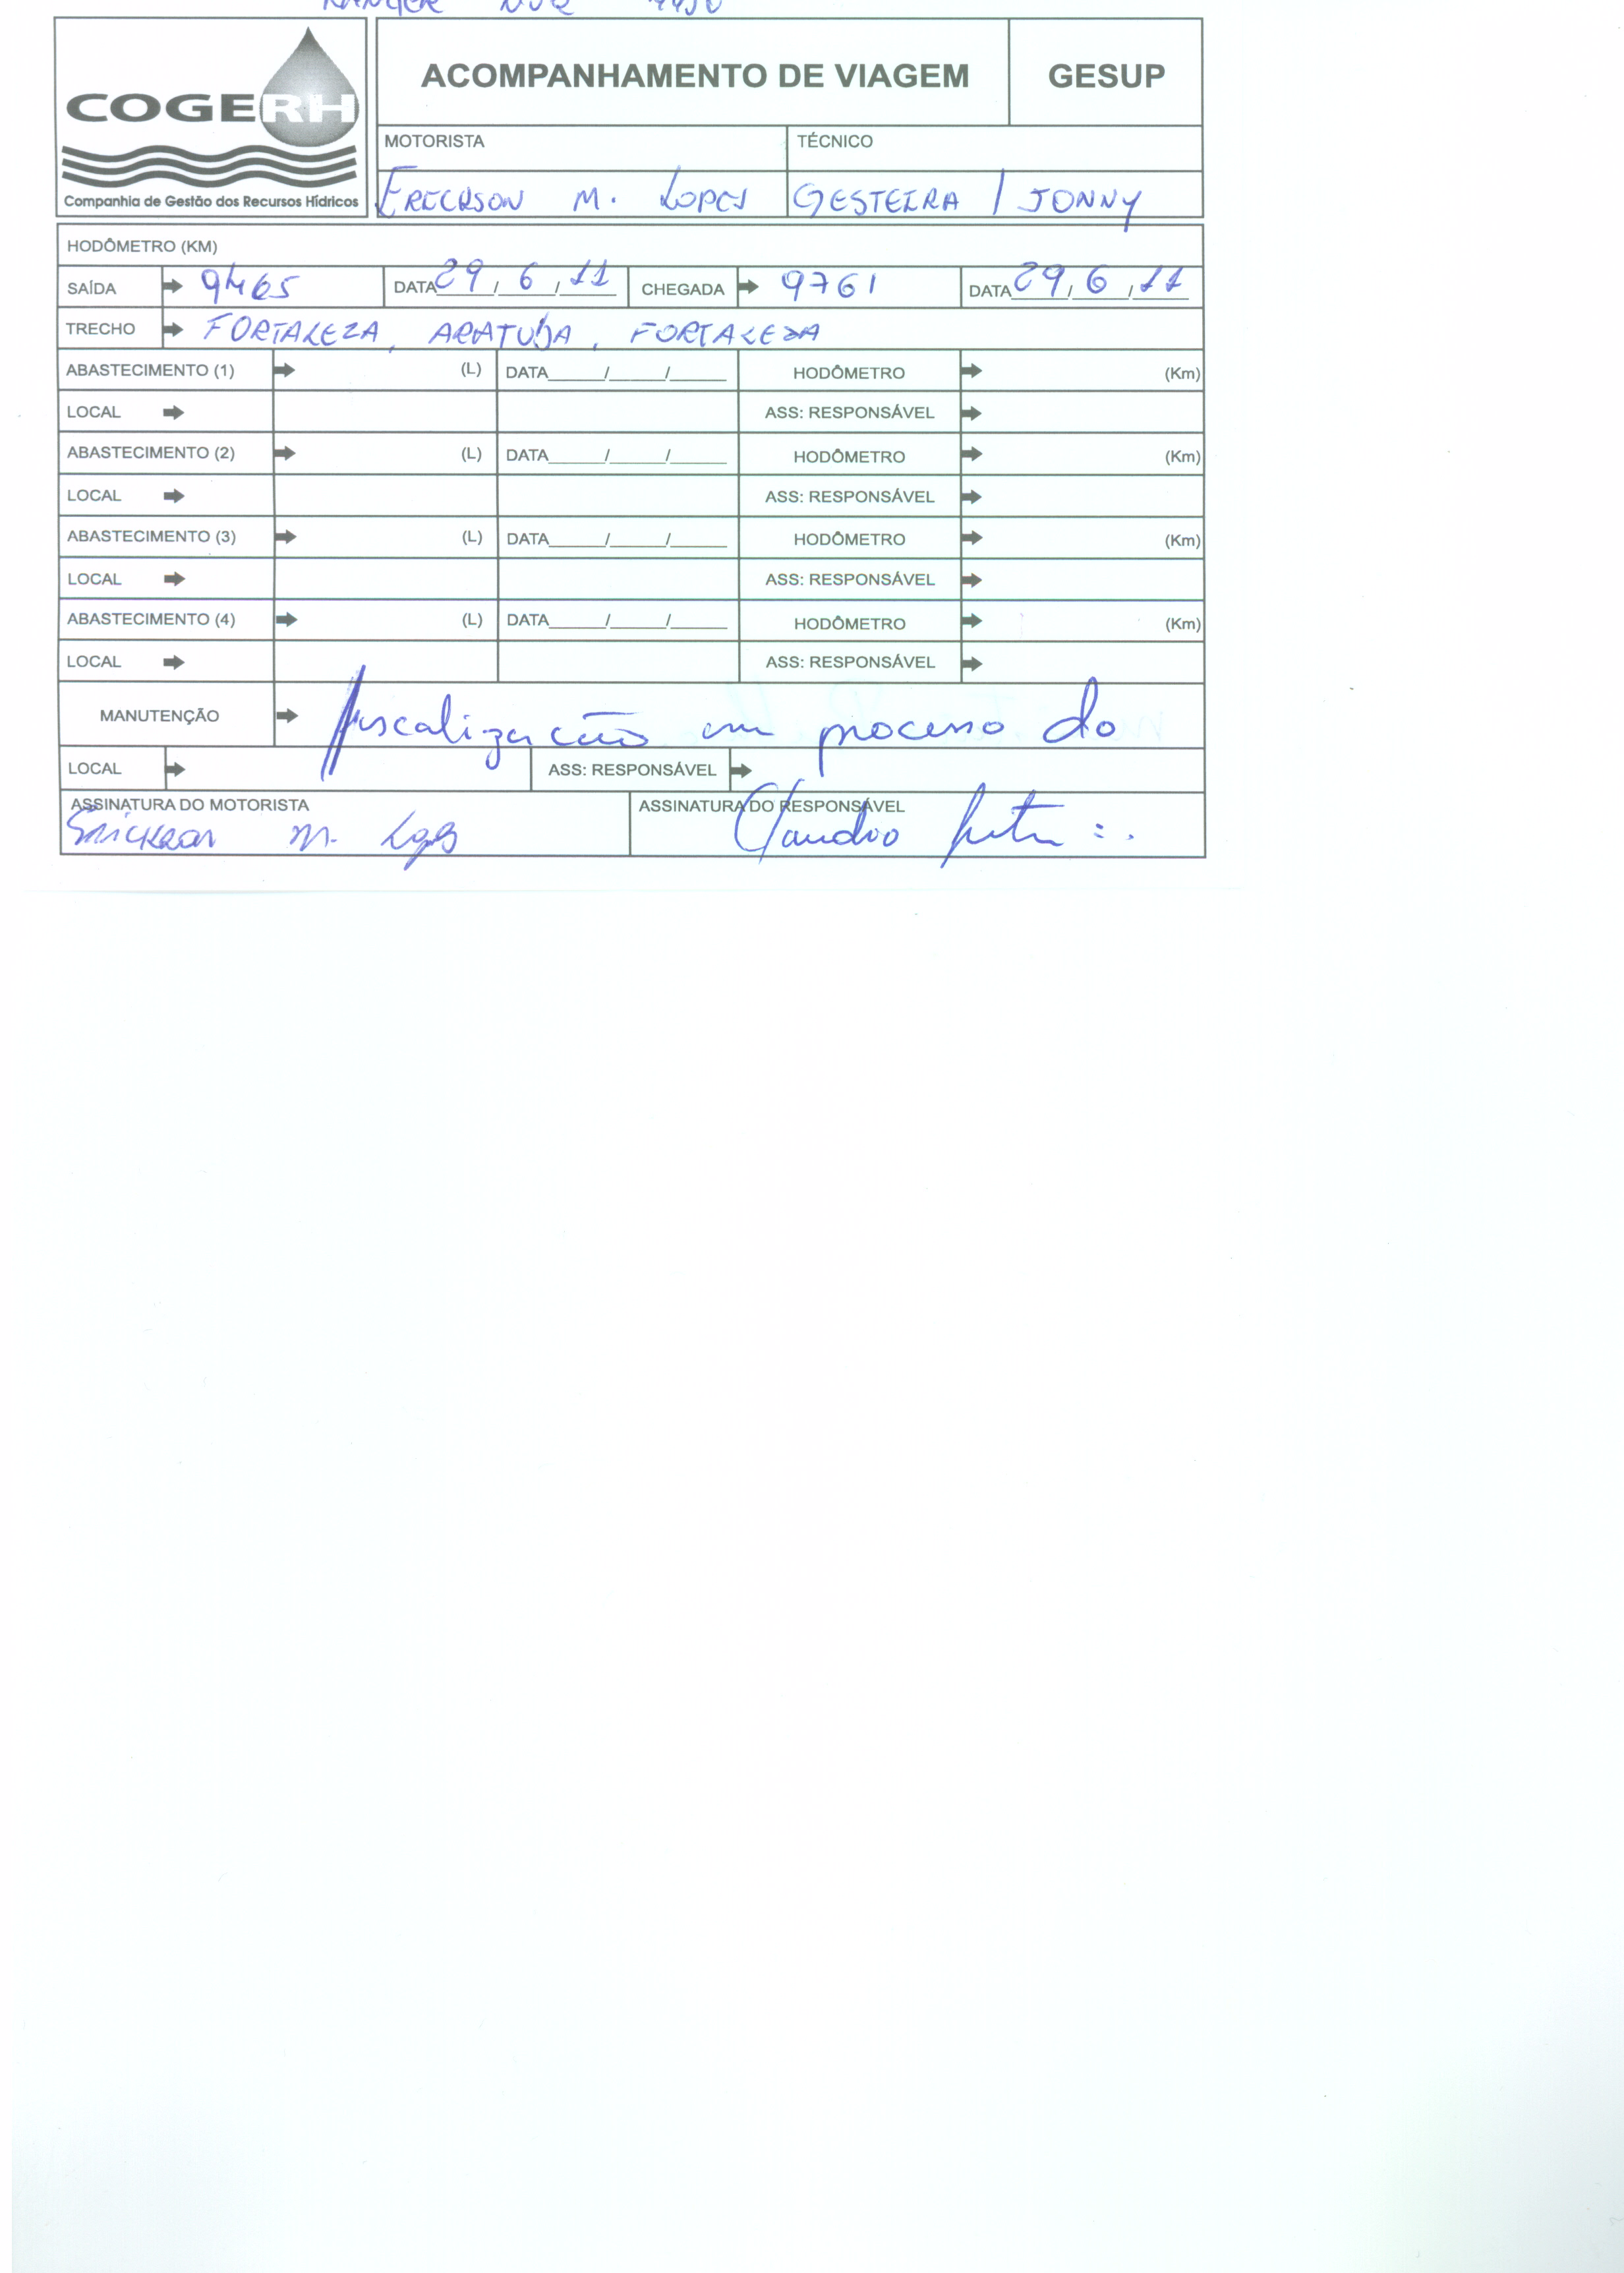 RANGER
COGERH
Companhia de Gestão dos Recursos Hídricos
ACOMPANHAMENTO DE VIAGEM GESUP
MOTORISTA TÉCNICO
ERICKSON M. LOPES GESTEIRA / JONNY
HODÔMETRO (KM)
SAÍDA 9465 DATA 29/6/11 CHEGADA 9761 DATA 29/6/11
TRECHO FORTALEZA, ARATUBA, FORTALEZA
ABASTECIMENTO (1) (L) DATA / / HODÔMETRO (Km)
LOCAL ASS: RESPONSÁVEL
ABASTECIMENTO (2) (L) DATA / / HODÔMETRO (Km)
LOCAL ASS: RESPONSÁVEL
ABASTECIMENTO (3) (L) DATA / / HODÔMETRO (Km)
LOCAL ASS: RESPONSÁVEL
ABASTECIMENTO (4) (L) DATA / / HODÔMETRO (Km)
LOCAL ASS: RESPONSÁVEL
MANUTENÇÃO fiscalização em processo do
LOCAL ASS: RESPONSÁVEL
ASSINATURA DO MOTORISTA ASSINATURA DO RESPONSÁVEL
Erickson M. Lopes Claudio